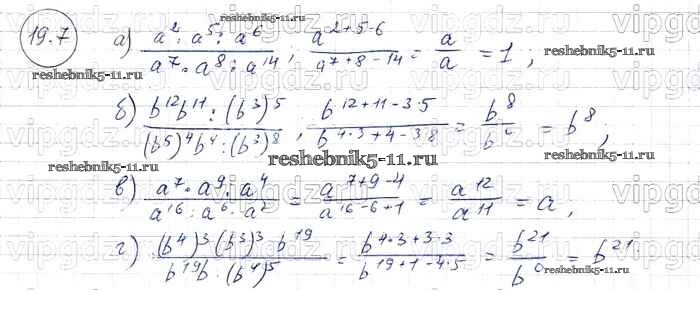 19.7
а) a² · a⁵ : a⁶ / a⁷ · a⁸ : a¹⁴ ; a²⁺⁵⁻⁶ / a⁷⁺⁸⁻¹⁴ = a / a = 1 ;
б) b¹²b¹¹ : (b³)⁵ / (b⁵)⁴b⁴ : (b³)⁸ ; b¹²⁺¹¹⁻³·⁵ / b⁴·³⁺⁴⁻³·⁸ = b⁸ / b = b⁸ ;
в) a⁷ · a⁹ : a⁴ / a¹⁶ : a⁶ · a² = a⁷⁺⁹⁻⁴ / a¹⁶⁻⁶⁺¹ = a¹² / a¹¹ = a ;
г) (b⁴)³(b³)³ · b¹⁹ / b¹⁹b · (b⁴)⁵ = b⁴·³⁺³·³ / b¹⁹⁺¹⁻⁴·⁵ = b²¹ / b⁰ = b²¹
www.reshebnik5-11.ru
reshebnik5-11.ru
reshebnik5-11.ru
reshebnik5-11.ru
reshebnik5-11.ru
www.reshebnik5-11.ru
reshebnik5-11.ru
www.reshebnik5-11.ru
vipgdz.ru